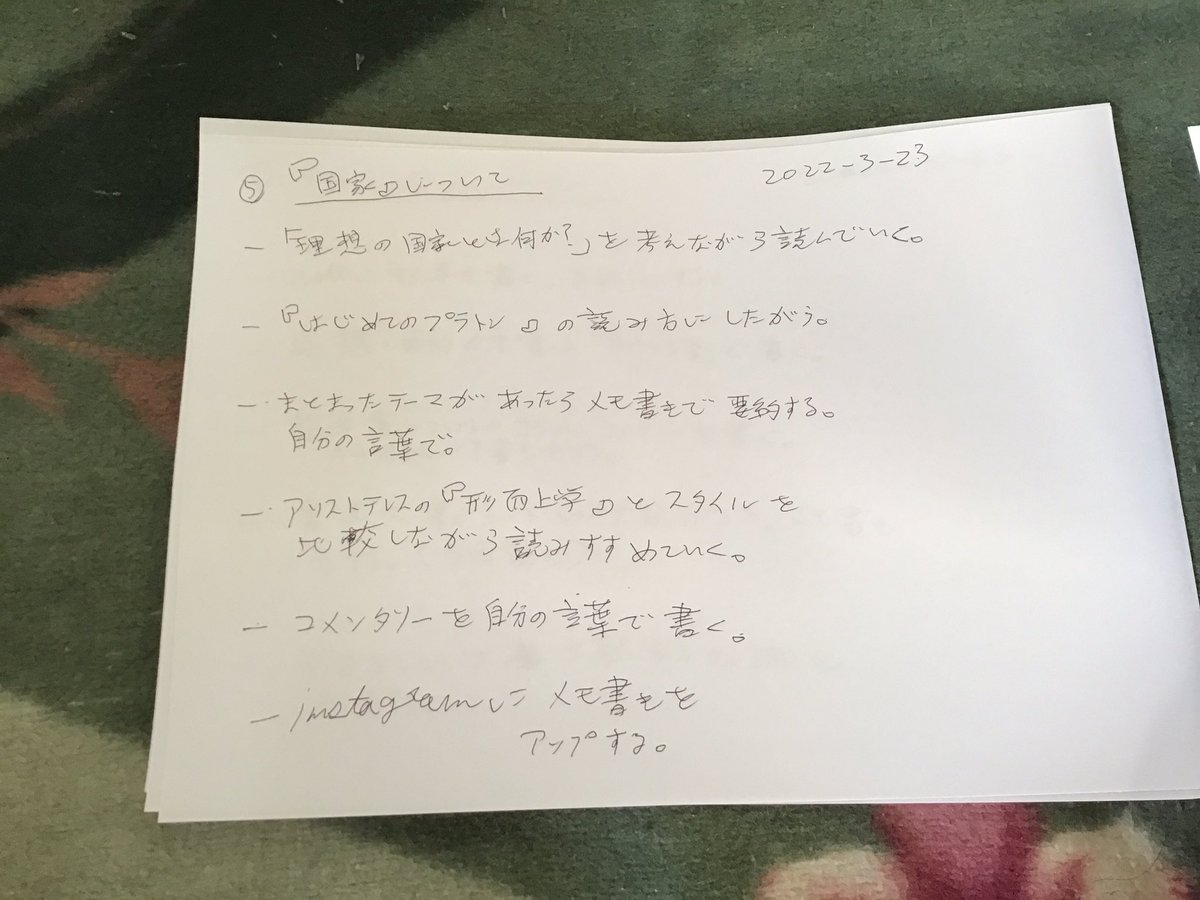 ⑤ 『国家』について 2022-3-23
- 「理想の国家とは何か?」を考えながら読んでいく。
- 『はじめてのプラトン』の読み方にしたがう。
- まとまったテーマがあったらメモ書きで要約する。
自分の言葉で。
- アリストテレスの『形而上学』とスタイルを
比較しながら読みすすめていく。
- コメンタリーを自分の言葉で書く。
- instagramにメモ書きを
アップする。